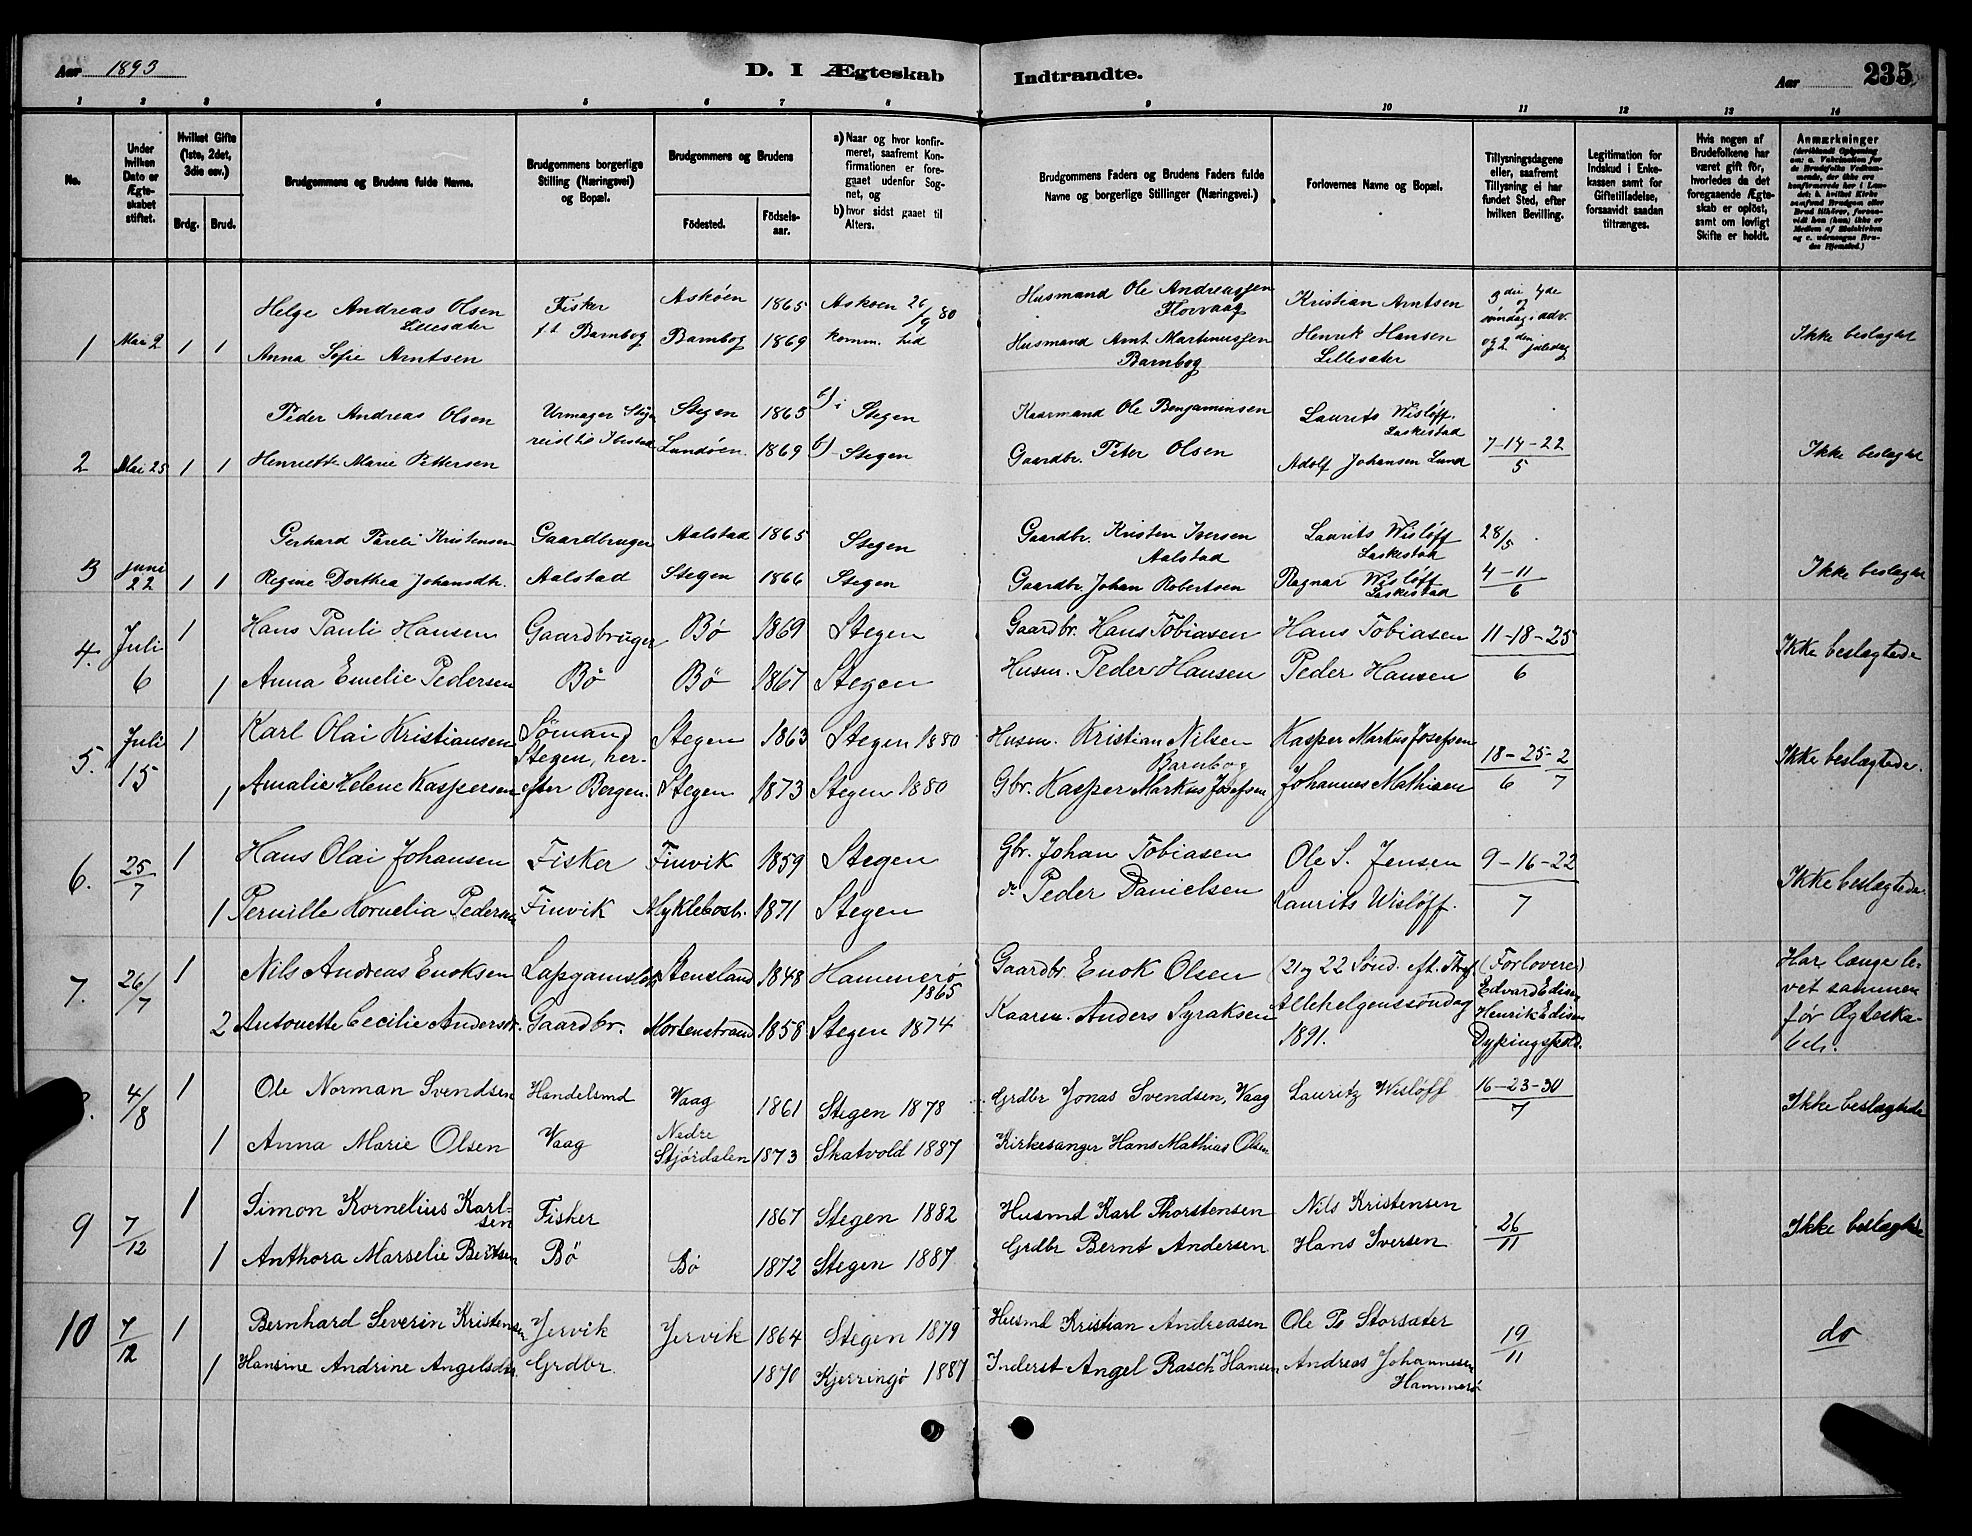 Aar 1893
D. I Ægteskab Indtraadte.
Aar
235
1 2 3 4 5 6 7 8 9 10 11 12 13 14
No.
Under hvilken Dato er Ægteskabet stiftet.
Hvilket Gifte (1ste, 2det, 3die osv.)
Brdg. Brud.
Brudgommens og Brudens fulde Navne.
Brudgommens borgerlige Stilling (Næringsvei) og Bopæl.
Brudgommens og Brudens
Födested.
Födselsaar.
a) Naar og hvor konfirmeret, saafremt Konfirmationen er foregaaet udenfor Sognet, og
b) hvor sidst gaaet til Alters.
Brudgommens Faders og Brudens Faders fulde Navne og borgerlige Stillinger (Næringsvei.)
Forlovernes Navne og Bopæl.
Tillysningsdagene eller, saafremt Tillysning ei har fundet Sted, efter hvilken Bevilling.
Legitimation for Indskud i Enkekassen samt for Giftetilladelse, forsaavidt saadan tiltrænges.
Hvis nogen af Brudefolkene har været gift för, hvorledes da det foregaaende Ægteskab er oplöst, samt om lovligt Skifte er holdt.
Anmærkninger
1 Mai 2 1 1
Helge Andreas Olsen Fisker Askøen 1865 Askøen 26/9 80 Husmand Ole Andreassen Kristian Arntsen 3die og 4de
Lillesæter f. t. Barnbog Florvaag søndag i adv.
Anna Sofie Arntsen Barnbog 1869 komm. tid Husmand Arnt Martinussen Henrik Hansen og 2den juledag Ikke beslagtet
Barnbog Lillesæter
2 Mai 25 1 1
Peder Andreas Olsen Urmager Stegen 1865 b) i Stegen Kaarmand Ole Benjaminsen Laurits Wisløff
Laskestad
Henriette Marie Pettersen Lundøen 1869 b) Stegen Gaardbr. Peter Olsen Adolf Johansen Lund 7-14-22/5 Ikke beslagtet
3 Juni 22 1 1
Gerhard Pareli Kristensen Gaardbruger Aalstad 1865 Stegen Gaardbr. Kristen Iversen Laurits Wisløff 28/5
Aalstad Laskestad
Regine Dorthea Johansdtr. Aalstad Stegen 1866 Stegen Gaardbr. Johan Robertsen Ragnar Wisløff 4-11/6 Ikke beslagtet
Laskestad
4. Juli 6 1
Hans Pauli Hansen Gaardbruger Bø 1869 Stegen Gaardbr. Hans Tobiasen Hans Tobiasen 11-18-25/6 Ikke beslægtede
1 Anna Emelie Pedersen Bø Bø 1867 Stegen Husm. Peder Hansen Peder Hansen
5. Juli 15 1
Karl Olai Kristiansen Sømand Stegen 1863 Stegen 1880 Husm. Kristian Nilsen Kasper Markus Josefsen 18-25/6 - 2/7 Ikke beslægtede.
Stegen, her- Barnbog
1 Amalie Helene Kaspersen efter Bergen. Stegen 1873 Stegen 1880 Gbr. Kasper Markus Josefsen Johannes Mathisen
6. 25/7 1
Hans Olai Johansen Fisker Finvik 1859 Stegen Gbr. Johan Tobiasen Ole S. Jensen 9-16-22/7 Ikke beslægtede.
1 Pernille Kornelia Pedersen Finvik Myklebostr. 1871 Stegen do Peder Danielsen Laurits Wisløff.
7. 26/7 1
Nils Andreas Enoksen Stensland 1848 Hammerø 1865 Gaardbr. Enok Olsen (21 og 22 Sønd. eft. Tref. (Forlovere) Har længe le-
2 Antonette Cecilie Anderstr. Gaardbr. Mortenstrand 1858 Stegen 1874 Kaarm. Anders Syraksen Allehelgenssøndag 1891. Edvard Edisen vet sammen
Henrik Edisen før Ægteska-
Dypingspold. bet.
4/8 1
Ole Norman Svendsen Handelsmd Vaag 1861 Stegen 1878 Grdbr Jonas Svendsen, Vaag Lauritz Wisløff 16-23-30/7 Ikke beslægtede
1 Anna Marie Olsen Vaag Nedre Stjørdalen 1873 Skatvold 1887 Kirkesanger Hans Mathias Olsen
9 7/12 1
Simon Kornelius Karl-
sen Fisker 1867 Stegen 1882 Husmd Karl Thorstensen Nils Kristensen 26/11 Ikke beslægtede
1 Anthora Marselie Berntsen Bø Bø 1872 Stegen 1887 Grdbr Bernt Andersen Hans Iversen
10 7/12 1
Bernhard Severin Kristensen Jervik Jervik 1864 Stegen 1879 Husmd Kristian Andreasen Ole P Storsæter 19/11 do
1 Hansine Andrine Angelsdtr. Grdbr. 1870 Kjerringø 1887 Inderst Angel Rasch Hansen Andreas Johannesen
Hammerø